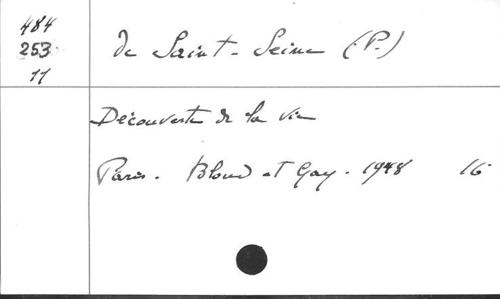 484
253
11
de Saint-Seine (P.)
Découverte de la vie
Paris. Bloud et Gay. 1948 16